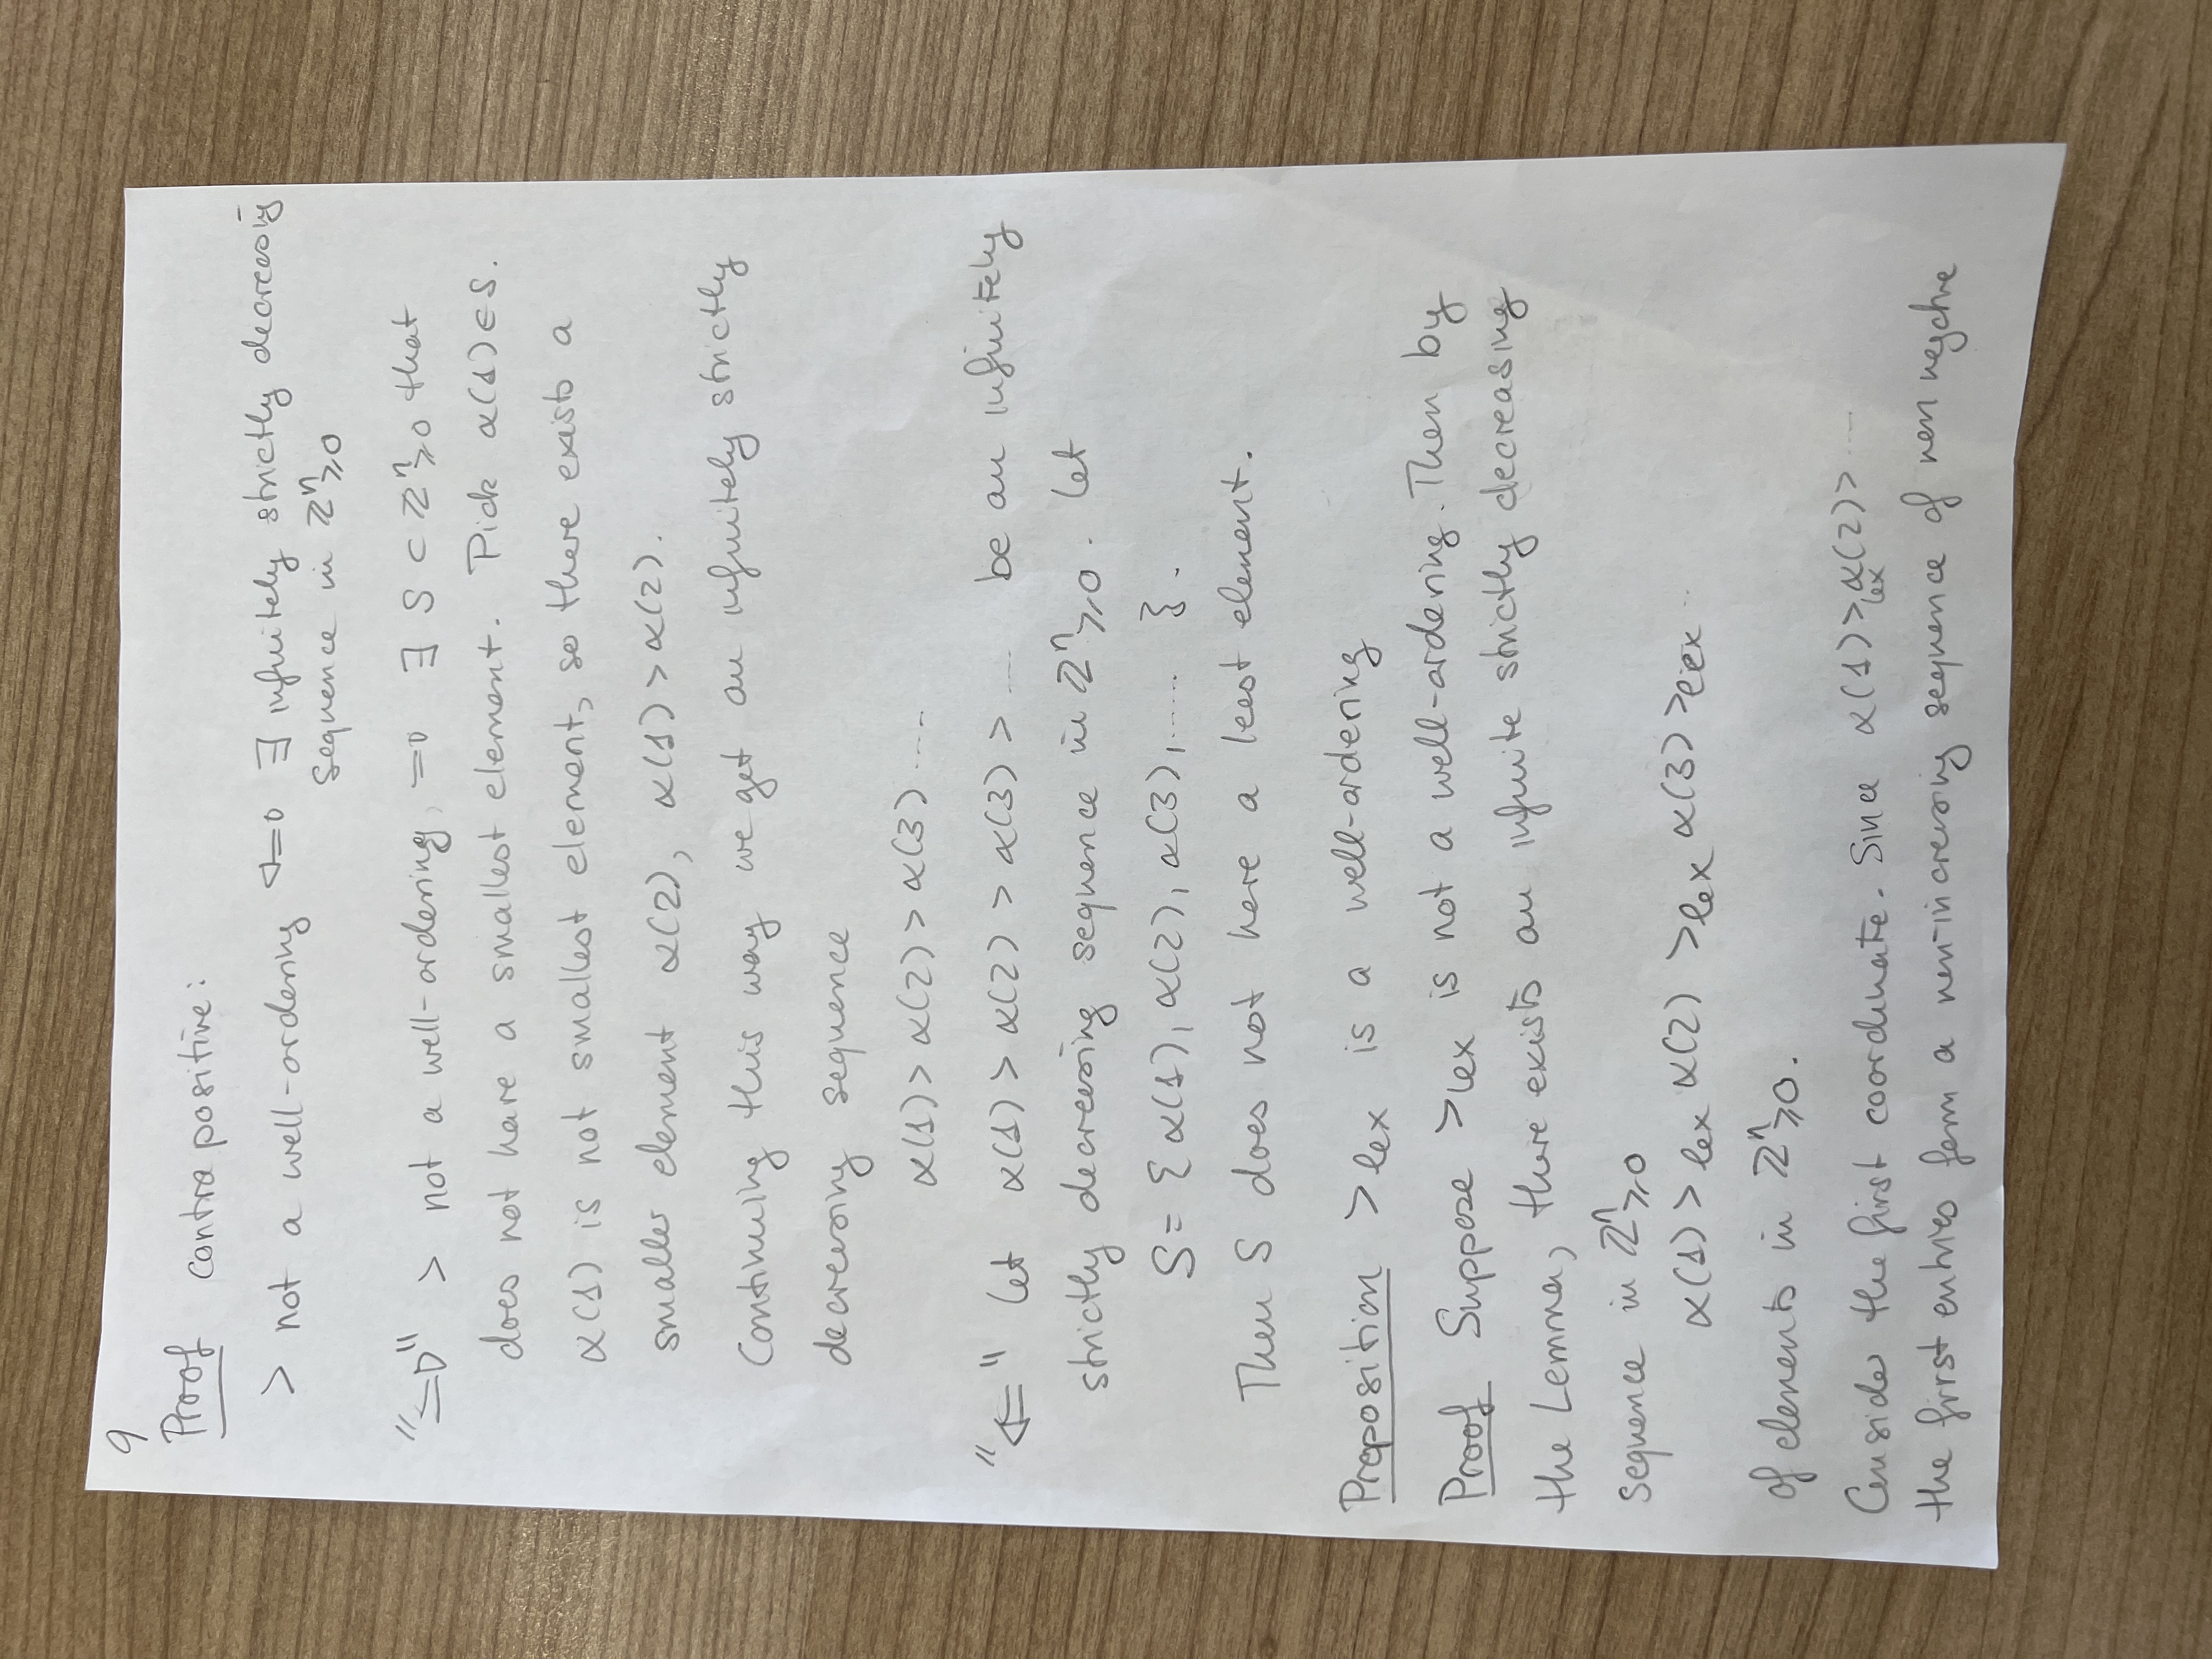 9
Proof contrapositive:
> not a well-ordering ⇐⇒ ∃ infinitely strictly decreasing
sequence in ℤⁿ≥0
"⇒" > not a well-ordering, ⇒ ∃ S ⊂ ℤⁿ≥0 that
does not have a smallest element. Pick α(1)∈S.
α(1) is not smallest element, so there exists a
smaller element α(2), α(1) > α(2).
Continuing this way we get an infinitely strictly
decreasing sequence
α(1) > α(2) > α(3) ....
"⇐" Let α(1) > α(2) > α(3) > .... be an infinitely
strictly decreasing sequence in ℤⁿ≥0. Let
S = {α(1), α(2), α(3), ..... }.
Then S does not have a least element.
Proposition >lex is a well-ordering
Proof Suppose >lex is not a well-ordering. Then by
the Lemma, there exists an infinite strictly decreasing
sequence in ℤⁿ≥0
α(1) >lex α(2) >lex α(3) >lex ..
of elements in ℤⁿ≥0.
Consider the first coordinate. Since α(1) >lex α(2) > ....
the first entries form a non-increasing sequence of non negative